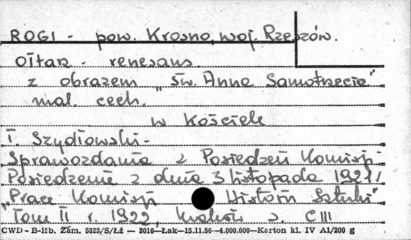 ROGI - pow. Krosno, woj. Rzeszów.
Ołtarz - renesans.
z obrazem "św. Anna Samotrzecia"
mal. cech.
w Kościele
T. Szydłowski -
Sprawozdania z Posiedzeń Komisji -
Posiedzenie z dnia 3 listopada 1921/
"Prace Komisji Historii Sztuki"
Tom II r. 1922, Kraków s. CIII
CWD - B-IIb. Zam. 5823/S/Łź — 3016—Łak—15.11.56—4.000.000—Karton kl. IV A1/200 g